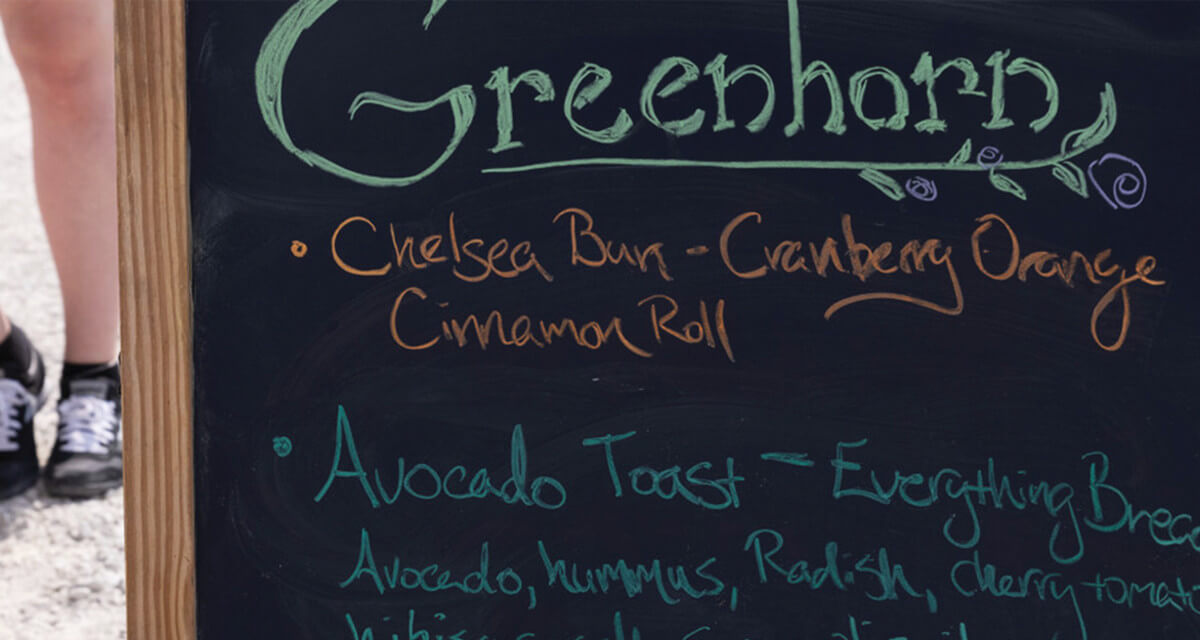 Greenhorn
• Chelsea Bun - Cranberry Orange
Cinnamon Roll
• Avocado Toast - Everything Bread
Avocado, hummus, Radish, cherry tomato